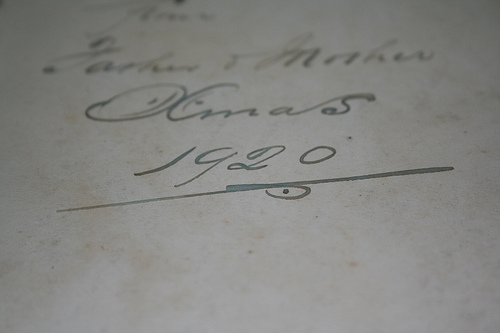 from
Father & Mother
Xmas
1920